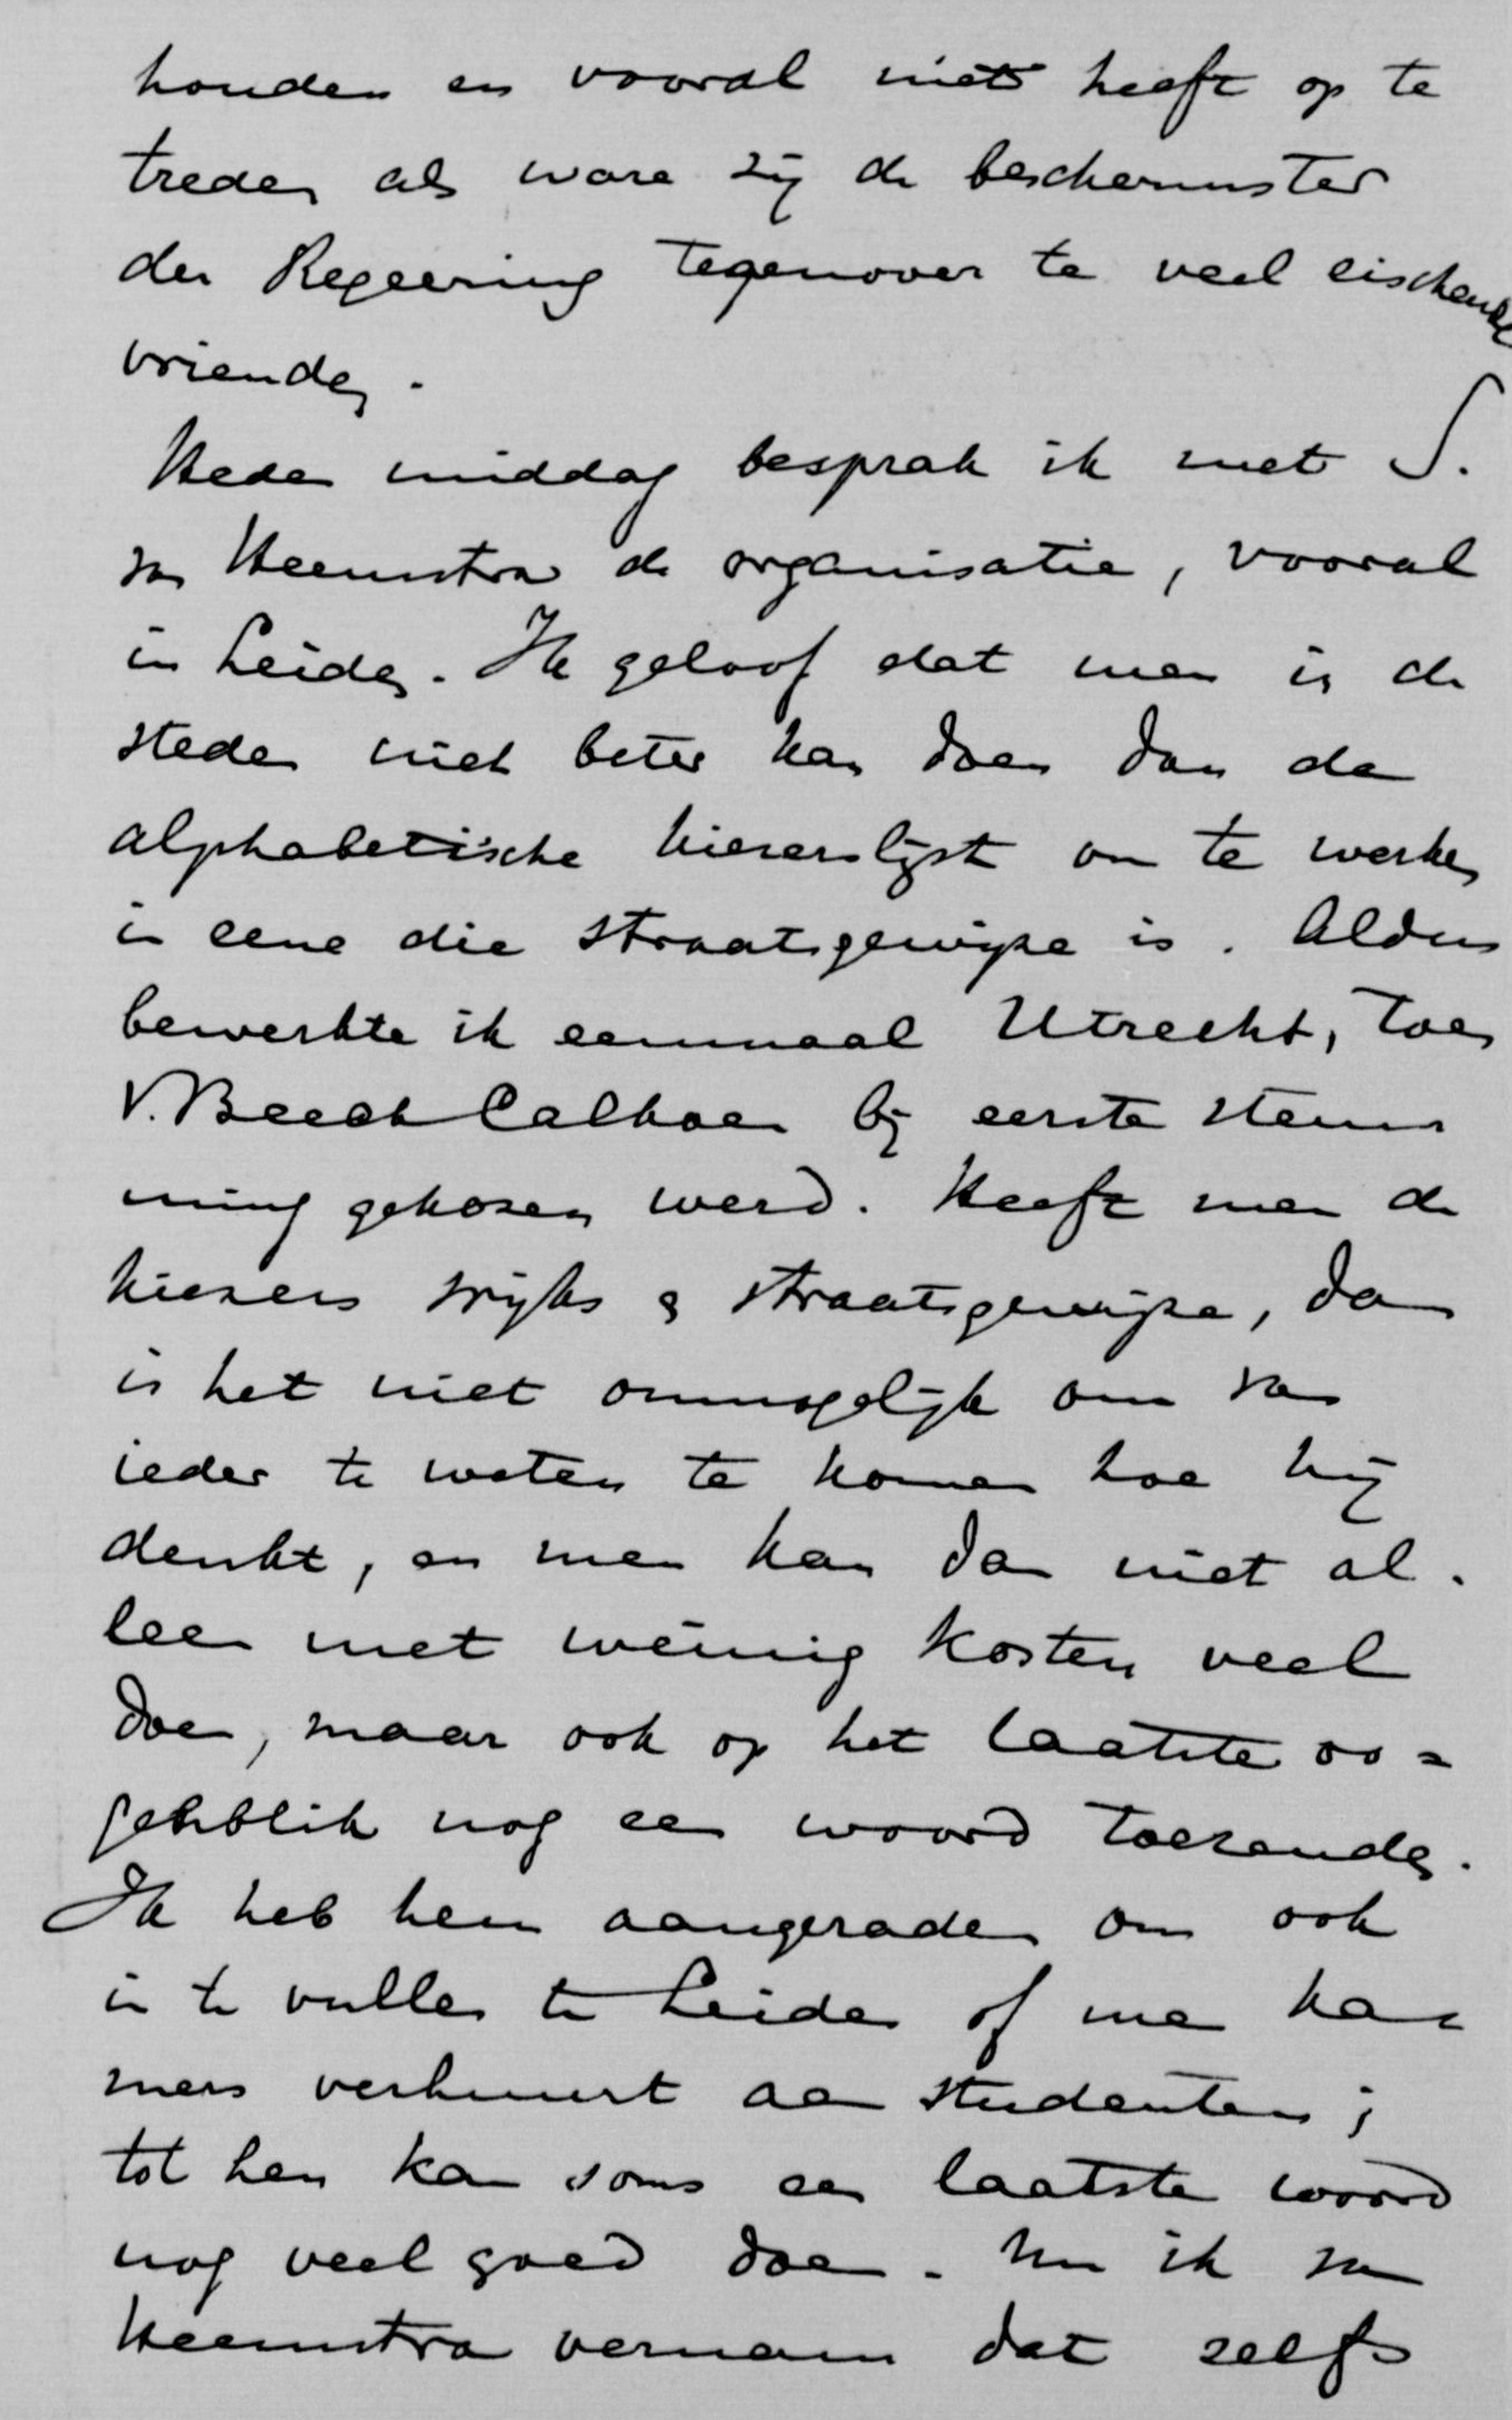 houden en vooral niet heeft op te
treden als ware zij de beschermster
der Regeering tegenover te veel eischende
vrienden.
Heden middag besprak ik met S.
van Heemstra de organisatie, vooral
in Leiden. Ik geloof dat men in de
steden niet beter kan doen dan de
alphabetische kiezerslijst om te werken
in eene die straatsgewijze is. Aldus
bewerkte ik eenmaal Utrecht, toen
V. Beeck Calkoen bij eerste stem
ming gekozen werd. Heeft men de
kiezers wijks & straatsgewijze, dan
is het niet onmogelijk om van
ieder te weten te komen hoe hij
denkt, en men kan dan niet al-
leen met weinig kosten veel
doen, maar ook op het laatste oo=
genblik nog een woord toezenden.
Ik heb hem aangeraden om ook
in te vullen te Leiden of men ka-
mers verhuurt aan studenten;
tot hen kan soms een laatste woord
nog veel goed doen. Nu ik van
Heemstra vernam dat zelfs